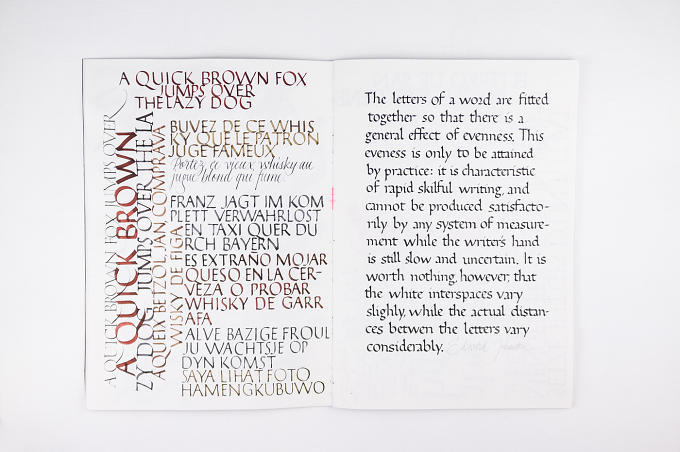 A QUICK BROWN FOX
JUMPS OVER
THE LAZY DOG
BUVEZ DE CE WHIS
KY QUE LE PATRON
JUGE FAMEUX
Portez ce vieux whisky au
juge blond qui fume
FRANZ JAGT IM KOM
PLETT VERWAHRLOST
EN TAXI QUER DU
RCH BAYERN
ES EXTRAÑO MOJAR
QUESO EN LA CER-
VEZA O PROBAR
WHISKY DE GARR
AFA
ALVE BAZIGE FROUL
JU WACHTSJE OP
DYN KOMST
SAYA LIHAT FOTO
HAMENGKUBUWO
A QUICK BROWN FOX JUMPS OVER
A QUICK BROWN
ZY DOG JUMPS OVER THE LA
AQUEIX BETZOL JAN COMPRAVA
WISKY DE FIGA
The letters of a word are fitted
together so that there is a
general effect of evenness. This
eveness is only to be attained
by practice: it is characteristic
of rapid skilful writing, and
cannot be produced satisfacto-
rily by any system of measure-
ment while the writer's hand
is still slow and uncertain. It is
worth nothing, however, that
the white interspaces vary
slighly, while the actual distan-
ces betwen the letters vary
considerably.